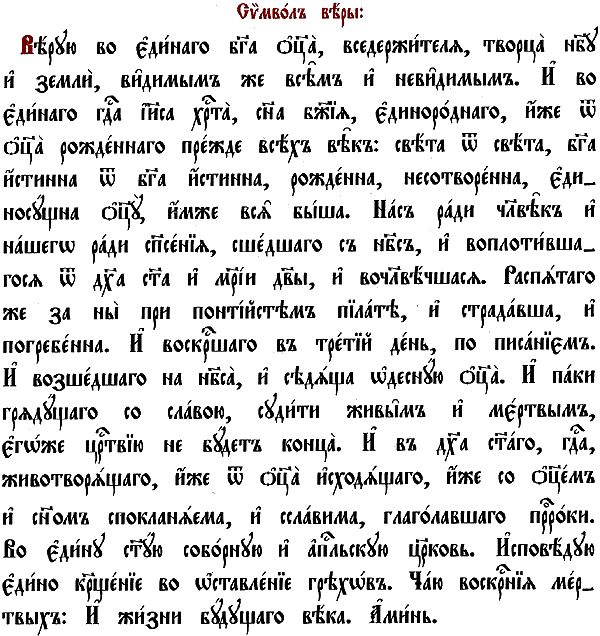 Сѷмво́лъ вѣ́ры:
Вѣ́рую во є҆ди́наго бг҃а ѻ҆ц҃а̀, вседержи́телѧ, творца̀ нб҃у
и҆ землѝ, ви̑димымъ же всѣ̑мъ и҆ неви̑димымъ. И҆ во
є҆ди́наго гд҇а і҆и҃са хр҇та̀, сн҃а бж҃їѧ, є҆диноро́днаго, и҆́же ѿ
ѻ҆ц҃а̀ рожде́ннаго пре́жде всѣ́хъ вѣ̑къ: свѣ́та ѿ свѣ́та, бг҃а
и҆́стинна ѿ бг҃а и҆́стинна, рожде́нна, несотворе́нна, є҆ди_
носу́щна ѻ҆ц҃ꙋ̀, и҆́мже всѧ̑ бы́ша. На́съ ра́ди чл҃вѣ̑къ и҆
на́шегѡ ра́ди сп҃се́нїѧ, сше́дшаго съ нб҃съ, и҆ воплоти́вша_
госѧ ѿ дх҃а ст҃а и҆ мр҃і́и дв҃ы, и҆ вочл҃вѣ́чшасѧ. Распѧ́таго
же за ны̀ при понті́йстѣмъ піла́тѣ, и҆ страда́вша, и҆
погребе́нна. И҆ воскр҇шаго въ тре́тїй де́нь, по писа́нїємъ.
И҆ возше́дшаго на нб҃са̀, и҆ сѣдѧ́ща ѡ҆десну́ю ѻ҆ц҃а̀. И҆ па́ки
грѧду́щаго со сла́вою, суди́ти живы̑мъ и҆ мє́ртвымъ,
є҆гѡ́же цр҇твїю не бу́детъ конца̀. И҆ въ дх҃а ст҃а́го, гд҇а,
животворѧ́щаго, и҆́же ѿ ѻ҆ц҃а̀ и҆сходѧ́щаго, и҆́же со ѻ҆ц҃е́мъ
и҆ сн҃омъ спокланѧ́ема, и҆ ссла́вима, глаго́лавшаго прⷪ҇ро́ки.
Во є҆ди́ну ст҃у́ю собо́рную и҆ а҆пⷭ҇льскую цр҃ковь. И҆сповѣ́дую
є҆ди́но кр҃ще́нїе во ѡ҆ставле́нїе грѣхѡ́въ. Ча́ю воскр҇нїѧ ме́р_
твыхъ: И҆ жи́зни бу́дущаго вѣ́ка. А҆ми́нь.